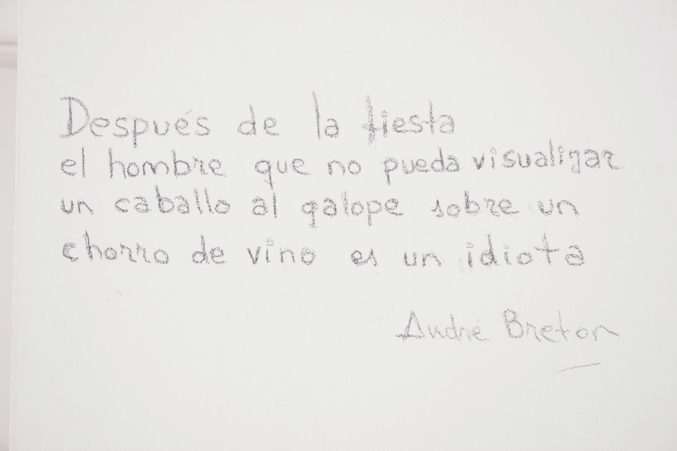 Después de la fiesta
el hombre que no pueda visualizar
un caballo al galope sobre un
chorro de vino es un idiota
André Breton